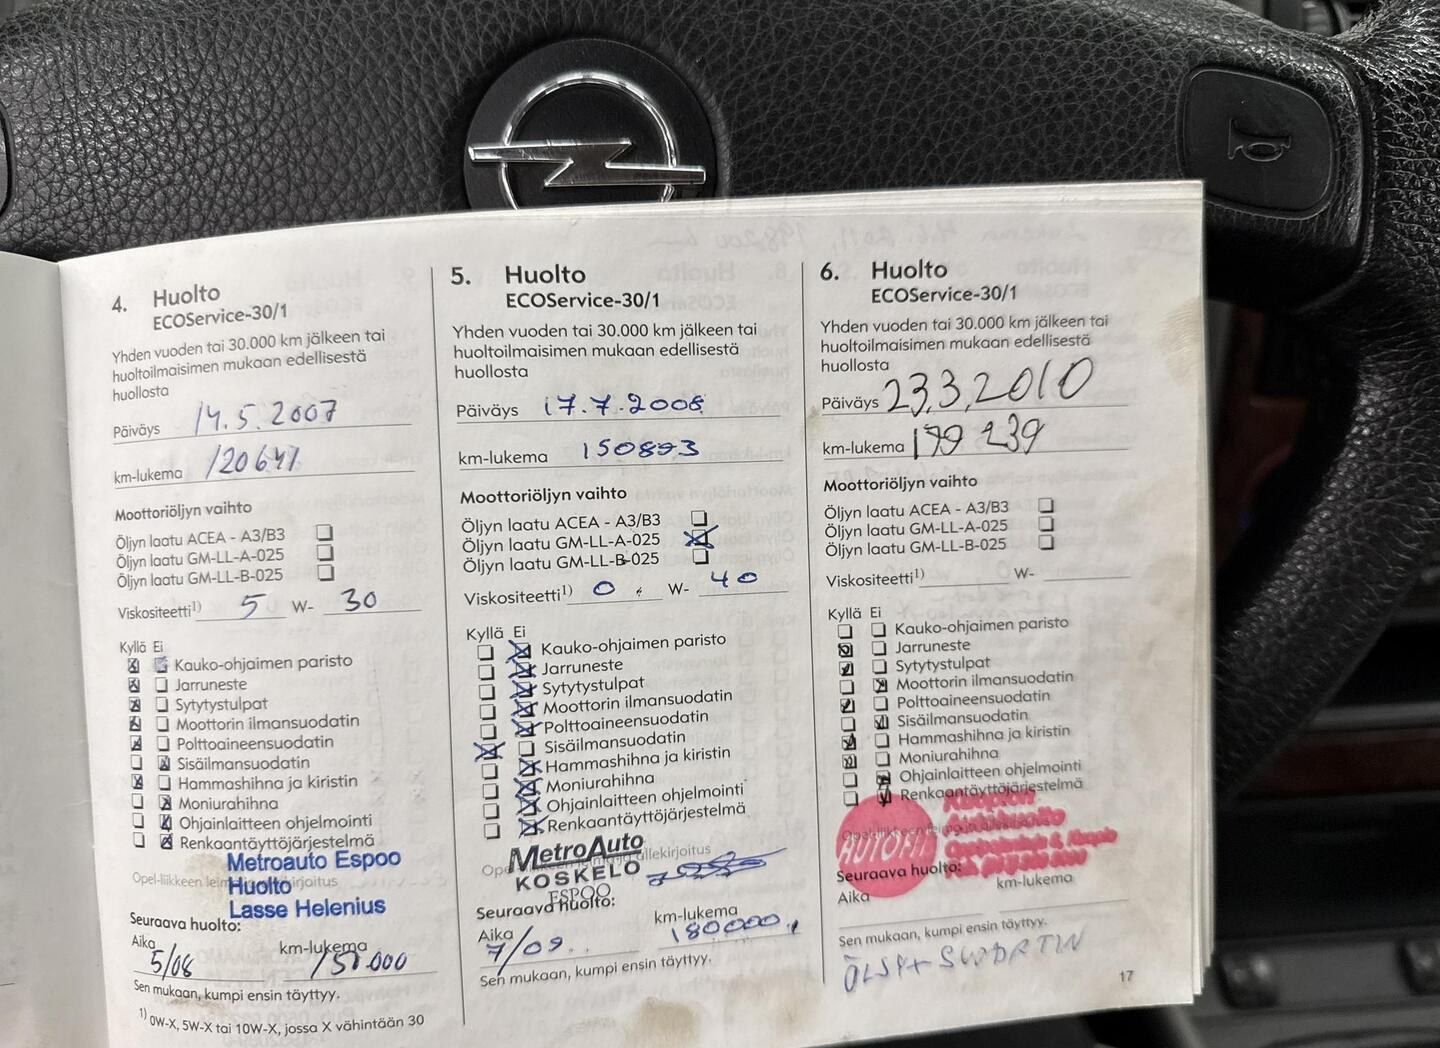 4. Huolto
ECOService-30/1
Yhden vuoden tai 30.000 km jälkeen tai
huoltoilmaisimen mukaan edellisestä
huollosta
Päiväys 14.5.2007
km-lukema 120641
Moottoriöljyn vaihto
Öljyn laatu ACEA - A3/B3
Öljyn laatu GM-LL-A-025
Öljyn laatu GM-LL-B-025
Viskositeetti1) 5 W- 30
Kyllä Ei
Kauko-ohjaimen paristo
Jarruneste
Sytytystulpat
Moottorin ilmansuodatin
Polttoaineensuodatin
Sisäilmansuodatin
Hammashihna ja kiristin
Moniurahihna
Ohjainlaitteen ohjelmointi
Renkaantäyttöjärjestelmä
Metroauto Espoo
Opel-liikkeen leima ja allekirjoitus
Huolto
Lasse Helenius
Seuraava huolto:
Aika 5/08 km-lukema 150.000
Sen mukaan, kumpi ensin täyttyy.
1) 0W-X, 5W-X tai 10W-X, jossa X vähintään 30
5. Huolto
ECOService-30/1
Yhden vuoden tai 30.000 km jälkeen tai
huoltoilmaisimen mukaan edellisestä
huollosta
Päiväys 17.7.2008
km-lukema 150893
Moottoriöljyn vaihto
Öljyn laatu ACEA - A3/B3
Öljyn laatu GM-LL-A-025
Öljyn laatu GM-LL-B-025
Viskositeetti1) 0 W- 40
Kyllä Ei
Kauko-ohjaimen paristo
Jarruneste
Sytytystulpat
Moottorin ilmansuodatin
Polttoaineensuodatin
Sisäilmansuodatin
Hammashihna ja kiristin
Moniurahihna
Ohjainlaitteen ohjelmointi
Renkaantäyttöjärjestelmä
MetroAuto
Opel-liikkeen leima ja allekirjoitus
KOSKELO
ESPOO
Seuraava huolto:
Aika 7/09 km-lukema 180000
Sen mukaan, kumpi ensin täyttyy.
6. Huolto
ECOService-30/1
Yhden vuoden tai 30.000 km jälkeen tai
huoltoilmaisimen mukaan edellisestä
huollosta
Päiväys 23.3.2010
km-lukema 179 239
Moottoriöljyn vaihto
Öljyn laatu ACEA - A3/B3
Öljyn laatu GM-LL-A-025
Öljyn laatu GM-LL-B-025
Viskositeetti1) W-
Kyllä Ei
Kauko-ohjaimen paristo
Jarruneste
Sytytystulpat
Moottorin ilmansuodatin
Polttoaineensuodatin
Sisäilmansuodatin
Hammashihna ja kiristin
Moniurahihna
Ohjainlaitteen ohjelmointi
Renkaantäyttöjärjestelmä
AUTOFIT
Kuopion
Seuraava huolto:
Aika km-lukema
Sen mukaan, kumpi ensin täyttyy.
17